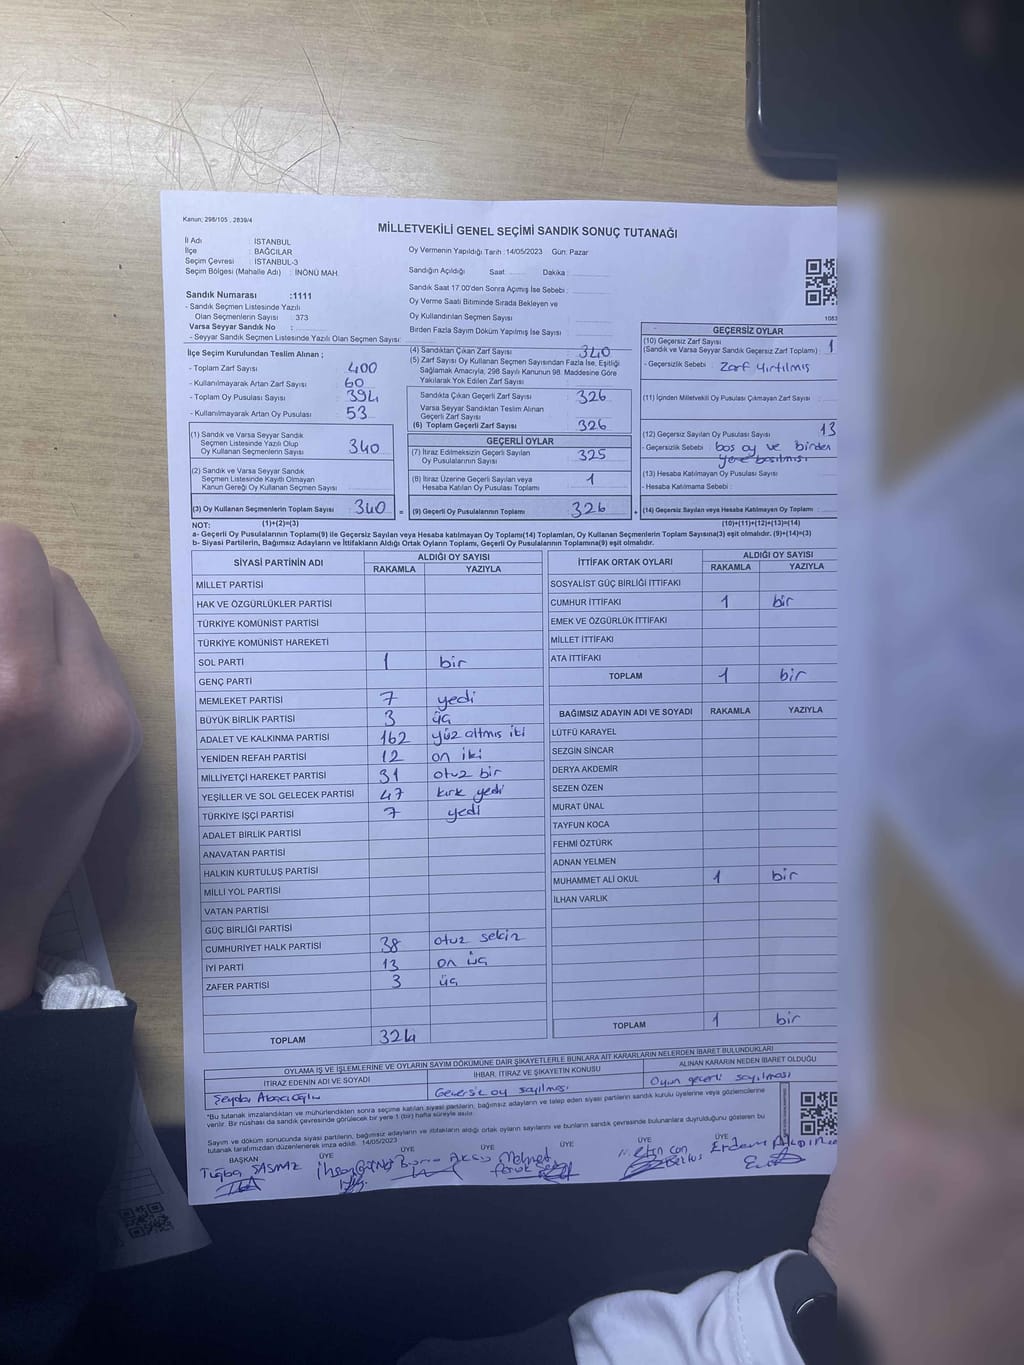 Kanun; 298/105 , 2839/4
MİLLETVEKİLİ GENEL SEÇİMİ SANDIK SONUÇ TUTANAĞI
İl Adı : İSTANBUL
İlçe : BAĞCILAR
Seçim Çevresi : İSTANBUL-3
Seçim Bölgesi (Mahalle Adı) : İNÖNÜ MAH.
Oy Vermenin Yapıldığı Tarih : 14/05/2023 Gün: Pazar
Sandığın Açıldığı Saat Dakika :
Sandık Saat 17.00'den Sonra Açımış İse Sebebi :
Oy Verme Saati Bitiminde Sırada Bekleyen ve
Oy Kullandırılan Seçmen Sayısı
Birden Fazla Sayım Döküm Yapılmış İse Sayısı
Sandık Numarası :1111
- Sandık Seçmen Listesinde Yazılı
Olan Seçmenlerin Sayısı : 373
Varsa Seyyar Sandık No :
- Seyyar Sandık Seçmen Listesinde Yazılı Olan Seçmen Sayısı:
İlçe Seçim Kurulundan Teslim Alınan ;
- Toplam Zarf Sayısı : 400
- Kullanılmayarak Artan Zarf Sayısı : 60
- Toplam Oy Pusulası Sayısı : 394
- Kullanılmayarak Artan Oy Pusulası : 53
(1) Sandık ve Varsa Seyyar Sandık
Seçmen Listesinde Yazılı Olup
Oy Kullanan Seçmenlerin Sayısı : 340
(2) Sandık ve Varsa Seyyar Sandık
Seçmen Listesinde Kaydı Olmayan
Kanun Gereği Oy Kullanan Seçmen Sayısı :
(3) Oy Kullanan Seçmenlerin Toplam Sayısı : 340 =
(4) Sandıktan Çıkan Zarf Sayısı : 340
(5) Zarf Sayısı Oy Kullanan Seçmen Sayısından Fazla İse, Eşitliği
Sağlamak Amacıyla, 298 Sayılı Kanunun 98. Maddesine Göre
Yakılarak Yok Edilen Zarf Sayısı :
Sandıkta Çıkan Geçerli Zarf Sayısı : 326
Varsa Seyyar Sandıktan Teslim Alınan
Geçerli Zarf Sayısı :
(6) Toplam Geçerli Zarf Sayısı : 326
GEÇERLİ OYLAR
(7) İtiraz Edilmeksizin Geçerli Sayılan
Oy Pusulalarının Sayısı : 325
(8) İtiraz Üzerine Geçerli Sayılan veya
Hesaba Katılan Oy Pusulası Toplamı : 1
(9) Geçerli Oy Pusulalarının Toplamı : 326 +
1083
GEÇERSİZ OYLAR
(10) Geçersiz Zarf Sayısı
(Sandık ve Varsa Seyyar Sandık Geçersiz Zarf Toplamı) : 1
- Geçersizlik Sebebi : Zarf yırtılmış
(11) İçinden Milletvekili Oy Pusulası Çıkmayan Zarf Sayısı :
(12) Geçersiz Sayılan Oy Pusulası Sayısı : 13
- Geçersizlik Sebebi : boş oy ve birden
yere basılmış
(13) Hesaba Katılmayan Oy Pusulası Sayısı :
- Hesaba Katılmama Sebebi :
(14) Geçersiz Sayılan veya Hesaba Katılmayan Oy Toplamı :
NOT: (1)+(2)=(3) (10)+(11)+(12)+(13)=(14)
a- Geçerli Oy Pusulalarının Toplamı(9) ile Geçersiz Sayılan veya Hesaba katılmayan Oy Toplamı(14) Toplamları, Oy Kullanan Seçmenlerin Toplam Sayısına(3) eşit olmalıdır. (9)+(14)=(3)
b- Siyasi Partilerin, Bağımsız Adayların ve İttifakların Aldığı Ortak Oyların Toplamı, Geçerli Oy Pusulalarının Toplamına(9) eşit olmalıdır.
SİYASİ PARTİNİN ADI ALDIĞI OY SAYISI
RAKAMLA YAZIYLA
MİLLET PARTİSİ
HAK VE ÖZGÜRLÜKLER PARTİSİ
TÜRKİYE KOMÜNİST PARTİSİ
TÜRKİYE KOMÜNİST HAREKETİ
SOL PARTİ 1 bir
GENÇ PARTİ
MEMLEKET PARTİSİ 7 yedi
BÜYÜK BİRLİK PARTİSİ 3 üç
ADALET VE KALKINMA PARTİSİ 162 yüz altmış iki
YENİDEN REFAH PARTİSİ 12 on iki
MİLLİYETÇİ HAREKET PARTİSİ 31 otuz bir
YEŞİLLER VE SOL GELECEK PARTİSİ 47 kırk yedi
TÜRKİYE İŞÇİ PARTİSİ 7 yedi
ADALET BİRLİK PARTİSİ
ANAVATAN PARTİSİ
HALKIN KURTULUŞ PARTİSİ
MİLLİ YOL PARTİSİ
VATAN PARTİSİ
GÜÇ BİRLİĞİ PARTİSİ
CUMHURİYET HALK PARTİSİ 38 otuz sekiz
İYİ PARTİ 13 on üç
ZAFER PARTİSİ 3 üç
TOPLAM 324
İTTİFAK ORTAK OYLARI ALDIĞI OY SAYISI
RAKAMLA YAZIYLA
SOSYALİST GÜÇ BİRLİĞİ İTTİFAKI
CUMHUR İTTİFAKI 1 bir
EMEK VE ÖZGÜRLÜK İTTİFAKI
MİLLET İTTİFAKI
ATA İTTİFAKI
TOPLAM 1 bir
BAĞIMSIZ ADAYIN ADI VE SOYADI RAKAMLA YAZIYLA
LÜTFÜ KARAYEL
SEZGİN SİNCAR
DERYA AKDEMİR
SEZEN ÖZEN
MURAT ÜNAL
TAYFUN KOCA
FEHMİ ÖZTÜRK
ADNAN YELMEN
MUHAMMET ALİ OKUL 1 bir
İLHAN VARLIK
TOPLAM 1 bir
OYLAMA İŞ VE İŞLEMLERİNE VE OYLARIN SAYIM DÖKÜMÜNE DAİR ŞİKAYETLERLE BUNLARA AİT KARARLARIN NELERDEN İBARET BULUNDUKLARI
İTİRAZ EDENİN ADI VE SOYADI İHBAR, İTİRAZ VE ŞİKAYETİN KONUSU ALINAN KARARIN NEDEN İBARET OLDUĞU
Geçersiz oy sayılması Oyun geçerli sayılması
*Bu tutanak imzalandıktan ve mühürlendikten sonra seçime katılan siyasi partilerin, bağımsız adayların ve talep eden siyasi partilerin sandık kurulu üyelerine veya gözlemcilerine
verilir. Bir nüshası da sandık çevresinde görülecek bir yere 1 (bir) hafta süreyle asılır.
Sayım ve döküm sonucunda siyasi partilerin, bağımsız adayların ve ittifakların aldığı ortak oyların sayılarını ve bunların sandık çevresinde bulunanlara duyrulduğunu gösteren bu
tutanak tarafımızdan düzenlenerek imza edildi. 14/05/2023
BAŞKAN ÜYE ÜYE ÜYE ÜYE ÜYE ÜYE
Tuğba Mehmet Erdem